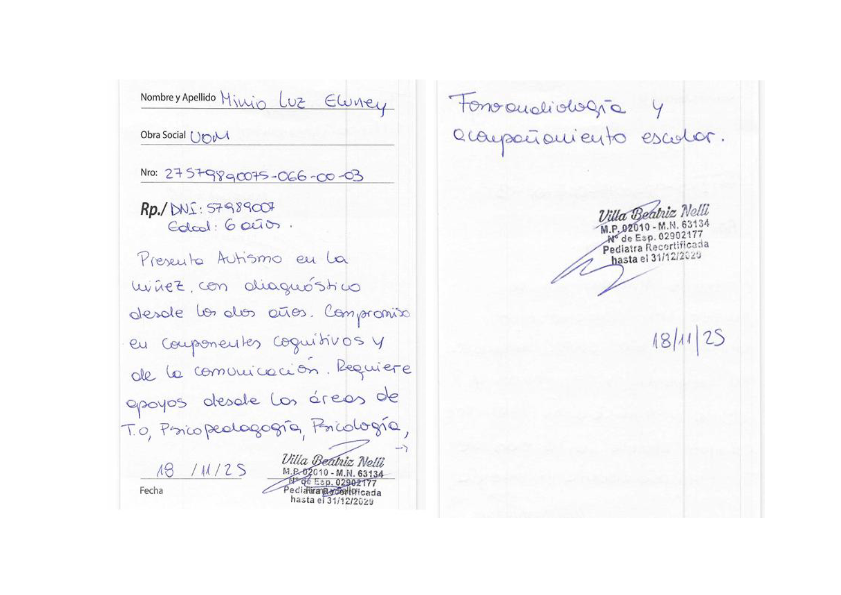 Nombre y Apellido Minio Luz Eluney
Obra Social UOM
Nro: 27579890075-066-00-03
Rp./ DNI: 57989007
Edad: 6 años.
Presenta Autismo en la
niñez, con diagnóstico
desde los dos años. Compromiso
en componentes cognitivos y
de la comunicación. Requiere
apoyos desde las áreas de
T.O, Psicopedagogía, Psicología,
→
18 /11/25
Fecha
Villa Beatriz Nelli
M.P. 02010 - M.N. 63134
N° de Esp. 02902177
Pediatra Recertificada
hasta el 31/12/2029
Fonoaudiología y
acompañamiento escolar.
Villa Beatriz Nelli
M.P. 02010 - M.N. 63134
N° de Esp. 02902177
Pediatra Recertificada
hasta el 31/12/2029
18/11/25